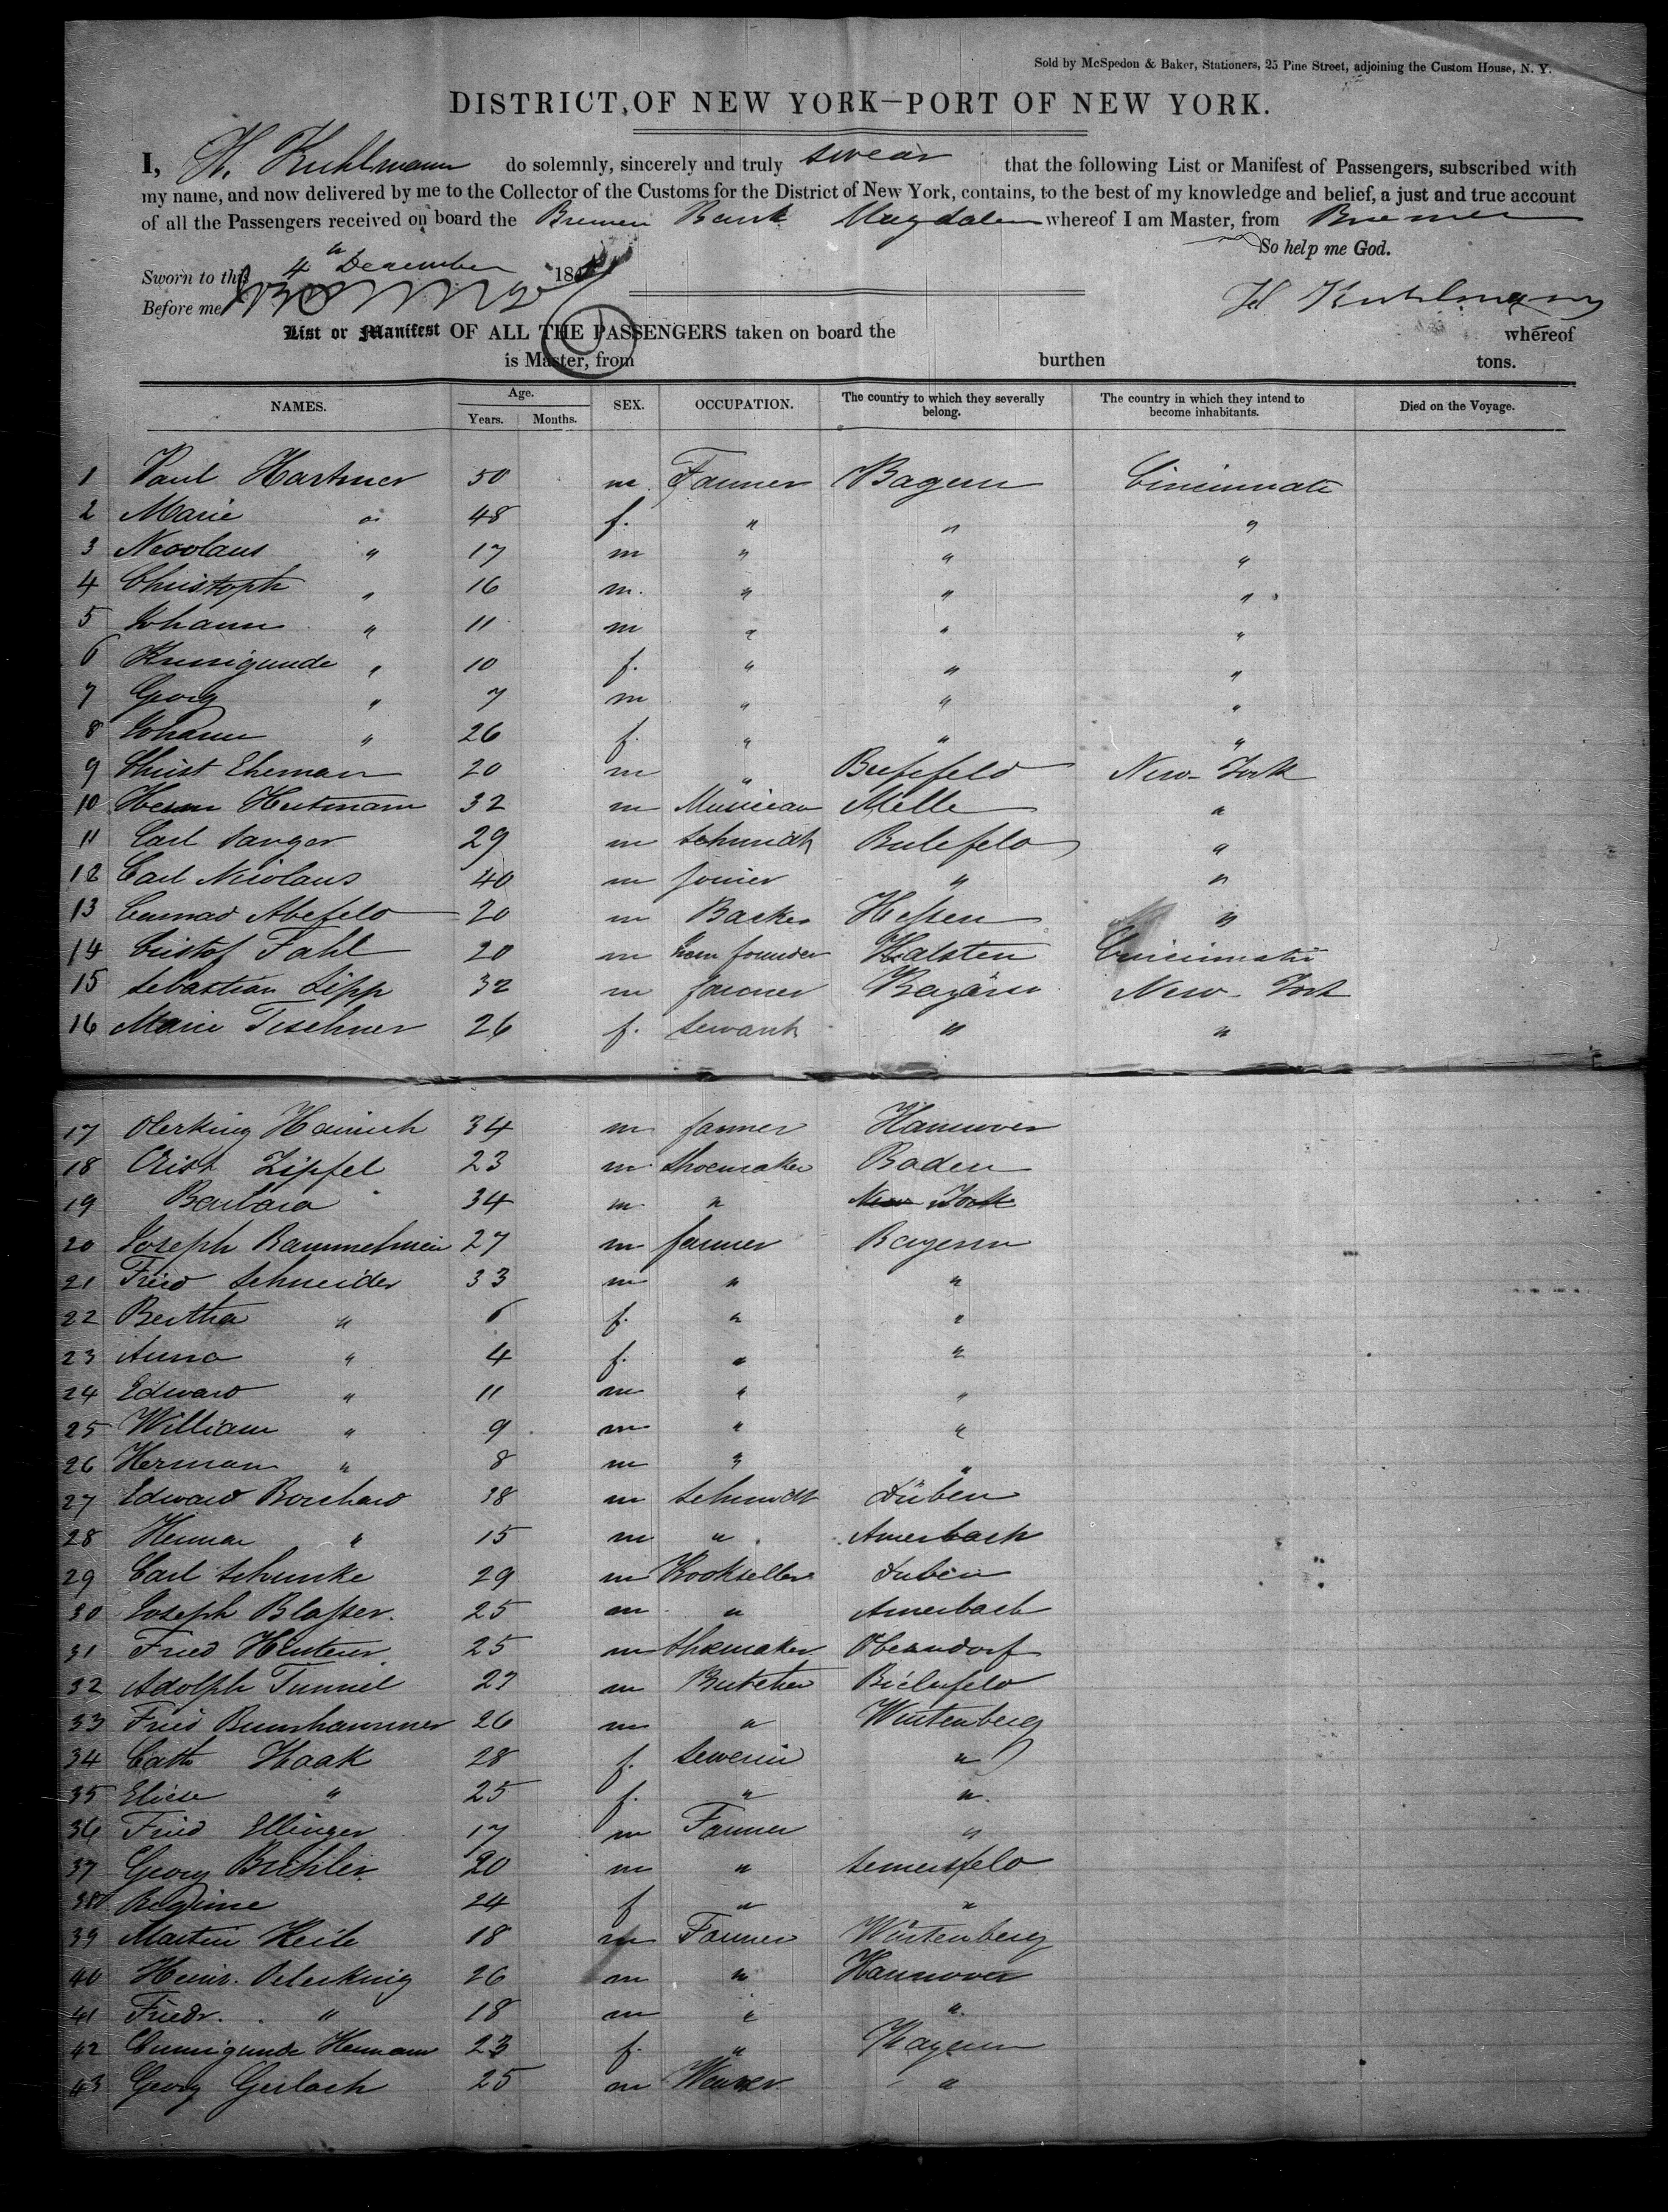 Sold by McSpedon & Baker, Stationers, 25 Pine Street, adjoining the Custom House, N. Y.
DISTRICT, OF NEW YORK—PORT OF NEW YORK.
I, H. Kuhlmann do solemnly, sincerely and truly swear that the following List or Manifest of Passengers, subscribed with
my name, and now delivered by me to the Collector of the Customs for the District of New York, contains, to the best of my knowledge and belief, a just and true account
of all the Passengers received on board the Bremen Bark Magdalen whereof I am Master, from Bremen
So help me God.
Sworn to this 4 December 184
Before me
H. Kuhlmann
List or Manifest OF ALL THE PASSENGERS taken on board the whereof
is Master, from burthen tons.
NAMES. Age. Years. Months. SEX. OCCUPATION. The country to which they severally belong. The country in which they intend to become inhabitants. Died on the Voyage.
1 Paul Hartner 50 m. Farmer Bayern Cincinnati
2 Marie " 48 f. " " "
3 Nicolaus " 17 m " " "
4 Christoph " 16 m. " " "
5 Johann " 11 m " " "
6 Kunigunde " 10 f. " " "
7 Georg " 7 m " " "
8 Johann " 26 f. " " "
9 Christ Eheman 20 m " New-York
10 Herm 32 m Musician Melle "
11 Carl Sanger 29 m Schmidt "
12 Carl Nicolaus 40 m joiner " "
13 Abefeld 20 m Backer Hessen "
14 Cristof Fahl 20 m founder Cincinnati
15 Sebastian Lipp 32 m farmer New-York
16 Marie Teschner 26 f. Servant " "
17 Oterking Heinrich 34 m farmer Hannover
18 Crist Zipfel 23 m shoemaker Baden
19 Barbara 34 m " New York
20 Joseph 27 m farmer Bayern
21 Fried Schneider 33 m " "
22 Bertha " 6 f. " "
23 Anna " 4 f. " "
24 Edward " 11 m " "
25 William " 9 m " "
26 Herman " 8 m " "
27 Edward Borchard 38 m Schmidt Düben
28 Herman " 15 m " Auerbach
29 Carl Schunke 29 m Bookseller Duben
30 Joseph Blasser. 25 m " Auerbach
31 Fried 25 m Shoemaker Oberndorf
32 Adolph Tunnel 23 m Butcher Bielefeld
33 Fried 26 m " Würtenberg
34 Cath Haak 28 f. "
35 Eliese " 25 f. " "
36 Fried Ellinger 17 m Farmer "
37 Georg Buhler 20 m "
38 Regine 24 f " "
39 Martin Keile 18 m Farmer Würtenberg
40 Heinr. Oelerking 26 m " Hannover
41 Friedr. " 18 m " "
42 Cunnigunde Hermann 23 f. " Bayern
43 Georg Gerlach 25 m Weaver "